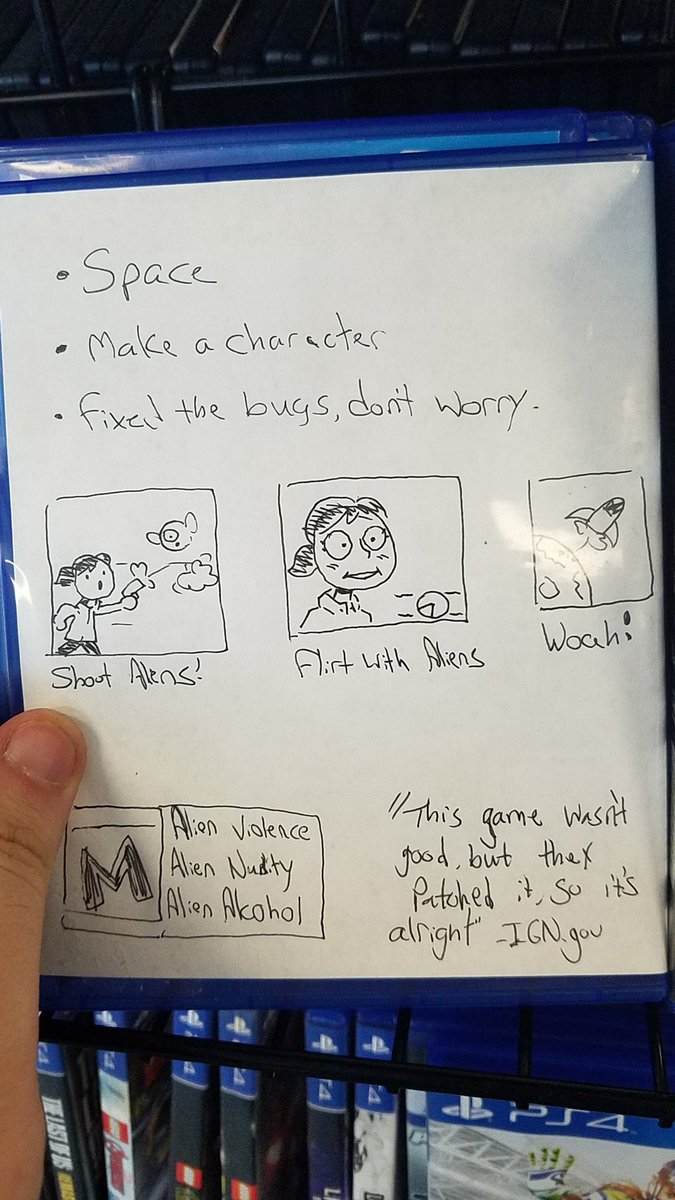 • Space
• Make a character
• fixed the bugs, don't worry.
Shoot Aliens!
Flirt with Aliens
Woah!
M
Alien Violence
Alien Nudity
Alien Alcohol
"This game wasn't
good, but they
Patched it, so it's
alright" -IGN.gov
THE LAST OF US
LEGO
PS4